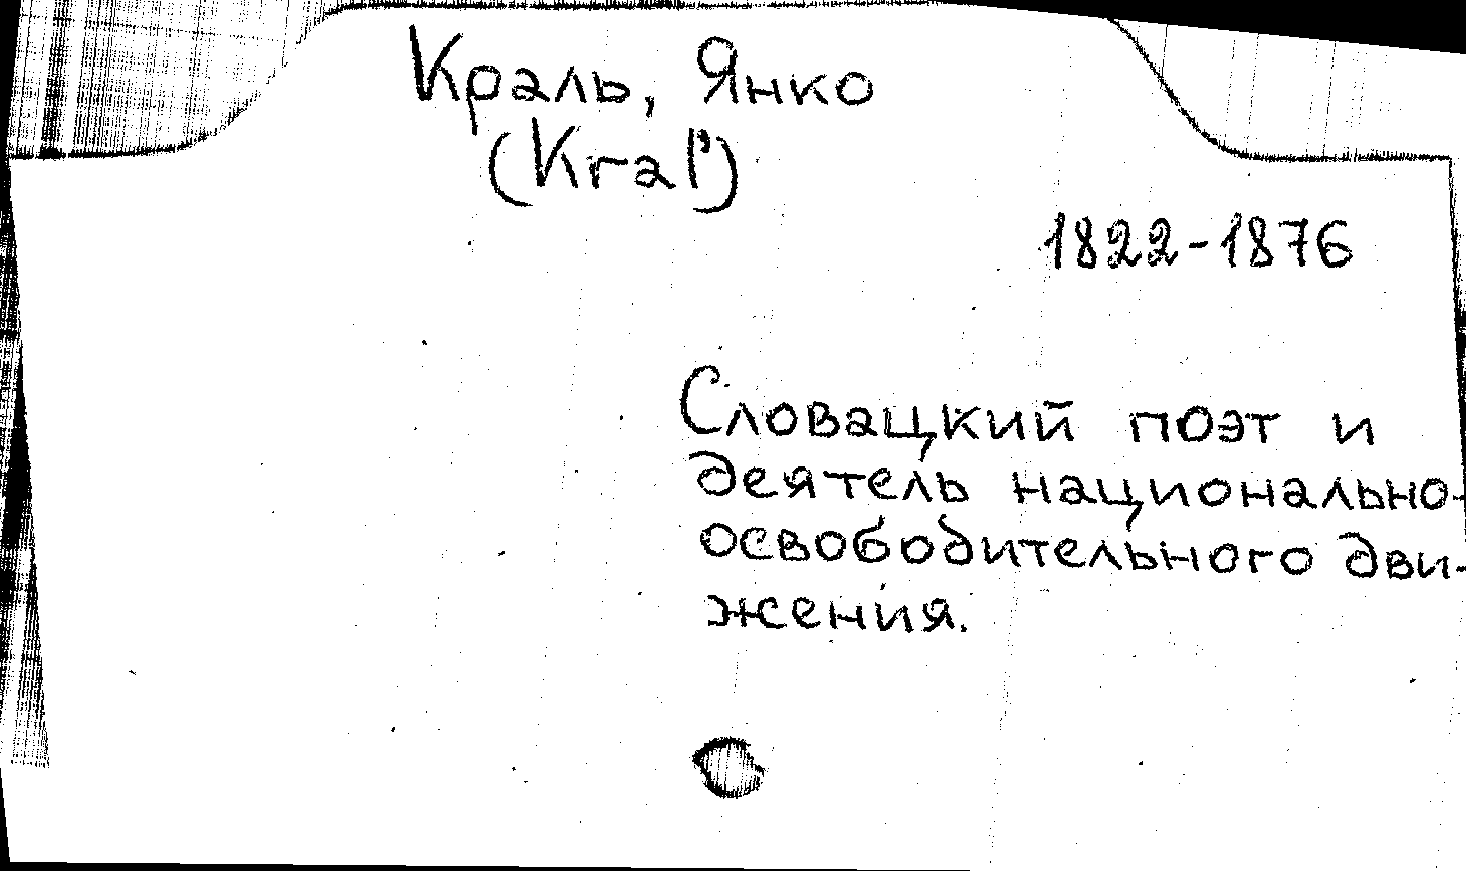 Краль, Янко
(Kral')
1822-1876
Словацкий поэт и
деятель национально-
освободительного дви-
жения.